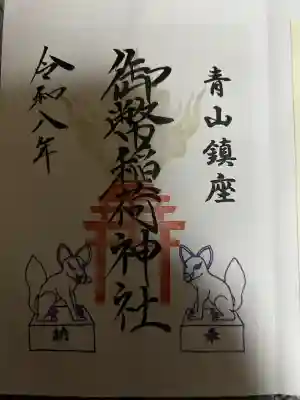 青山鎮座
御幣稲荷神社
令和八年
奉
納